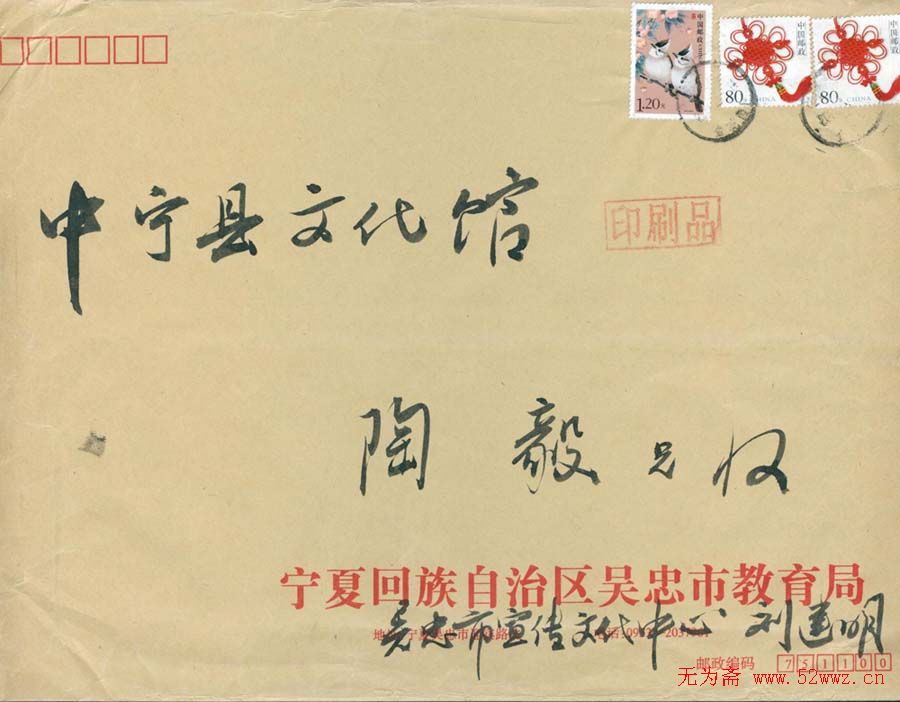 中国邮政 CHINA
1.20元
中国邮政
80分 CHINA
中国邮政
80分 CHINA
中宁县文化馆
印刷品
陶毅兄收
宁夏回族自治区吴忠市教育局
吴忠市宣传文化中心 刘建明
邮政编码 751100
无为斋 www.52wwz.cn